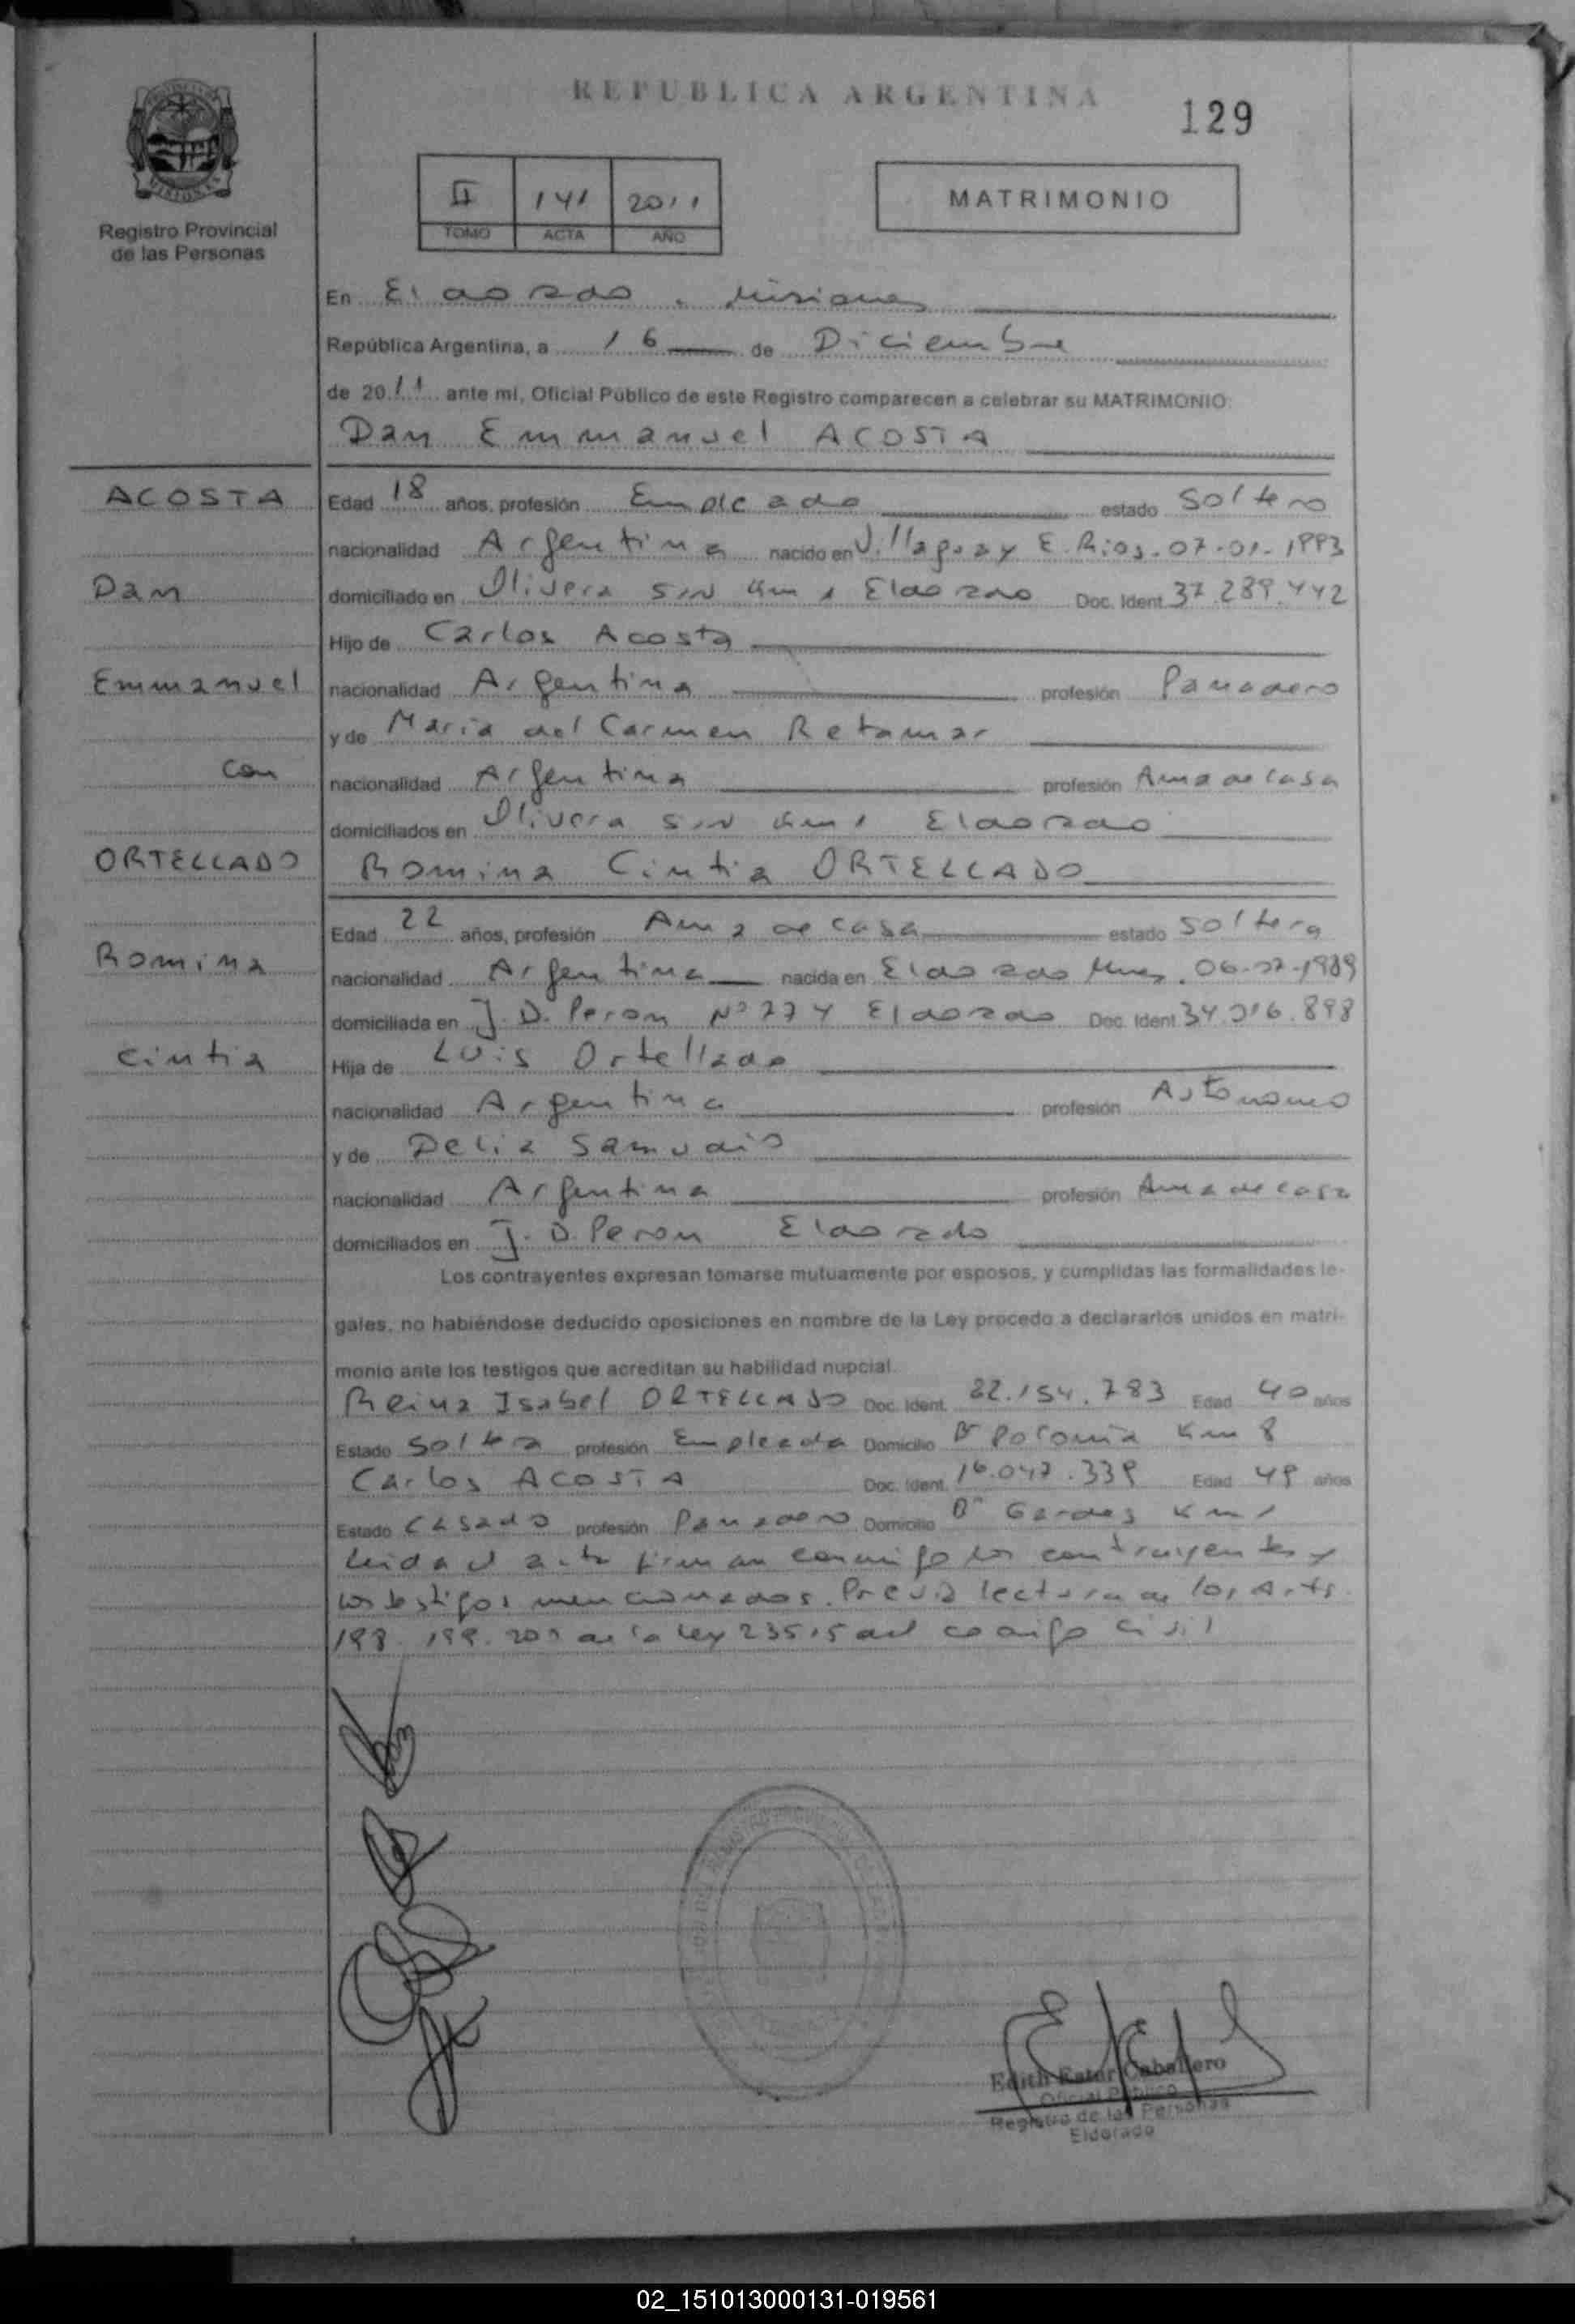 REPUBLICA ARGENTINA
129
MISIONES
Registro Provincial
de las Personas
II 141 2011
TOMO ACTA AÑO
MATRIMONIO
En Eldorado, Misiones
República Argentina, a 16 de Diciembre
de 2011 ante mí, Oficial Público de este Registro comparecen a celebrar su MATRIMONIO:
Dan Emmanuel ACOSTA
ACOSTA
Dan
Emmanuel
con
ORTELLADO
Romina
Cintia
Edad 18 años, profesión Empleado estado Soltero
nacionalidad Argentina nacido en Villaguay E. Rios. 07-01-1993
domiciliado en Olivera S/N km 1 Eldorado Doc. Ident. 37.289.442
Hijo de Carlos Acosta
nacionalidad Argentina profesión Panadero
y de Maria del Carmen Retamar
nacionalidad Argentina profesión Ama de casa
domiciliados en Olivera S/N km 1 Eldorado
Romina Cintia ORTELLADO
Edad 22 años, profesión Ama de casa estado Soltera
nacionalidad Argentina nacida en Eldorado Mnes. 06-07-1989
domiciliada en J. D. Peron Nº 774 Eldorado Doc. Ident. 34.016.898
Hija de Luis Ortellado
nacionalidad Argentina profesión Autonomo
y de Delia Samudio
nacionalidad Argentina profesión Ama de casa
domiciliados en J. D. Peron Eldorado
Los contrayentes expresan tomarse mutuamente por esposos, y cumplidas las formalidades le-
gales, no habiéndose deducido oposiciones en nombre de la Ley procedo a declararlos unidos en matri-
monio ante los testigos que acreditan su habilidad nupcial.
Reina Isabel ORTELLADO Doc. Ident. 22.154.783 Edad 40 años
Estado Soltera profesión Empleada Domicilio Bº Polonia Km 8
Carlos ACOSTA Doc. Ident. 16.047.339 Edad 49 años
Estado Casado profesión Panadero Domicilio Bº Km 1
Leida el acta firman conmigo los contrayentes y
los testigos mencionados. Previa lectura de los Arts.
198. 199. 200 de la Ley 23515 del codigo civil
Edith Ester Caballero
Oficial Público
Registro de las Personas
Eldorado
02_151013000131-019561